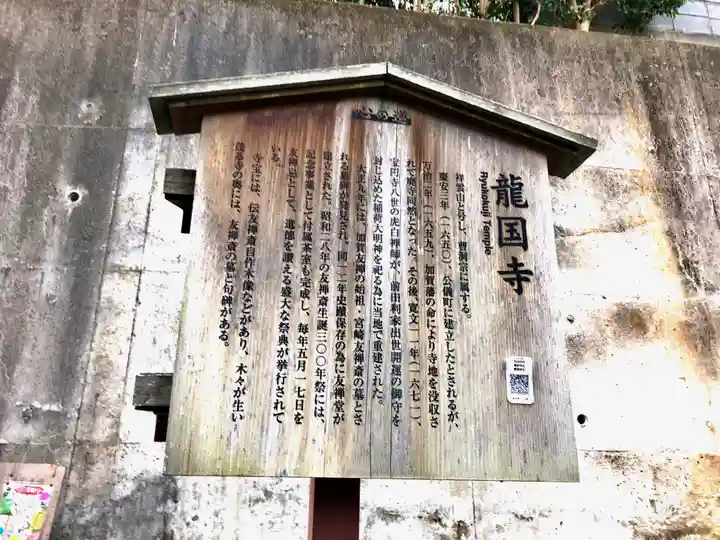 心の道
龍国寺
Ryukokuji Temple
祥雲山と号し、曹洞宗に属する。
慶安三年(一六五〇)、公儀町に建立したとされるが、
万治二年(一六五九)、加賀藩の命により寺地を没収さ
れて廃寺同然となった。その後、寛文一一年(一六七一)、
宝円寺八世の虎白禅師が、前田利家出世開運の御守を
封じ込めた稲荷大明神を祀る為に当地で重建された。
大正九年には、加賀友禅の始祖・宮崎友禅斎の墓とさ
れる墓碑が発見され、同一二年史蹟保存の為に友禅堂が
建立された。昭和二八年の友禅斎生誕三〇〇年祭には、
記念事業として付属茶室も完成し、毎年五月一七日を
友禅忌として、遺徳を讃える盛大な祭典が挙行されて
いる。
寺宝には、伝友禅斎自作木像などがあり、木々が生い
茂る寺の奥には、友禅斎の墓と句碑がある。